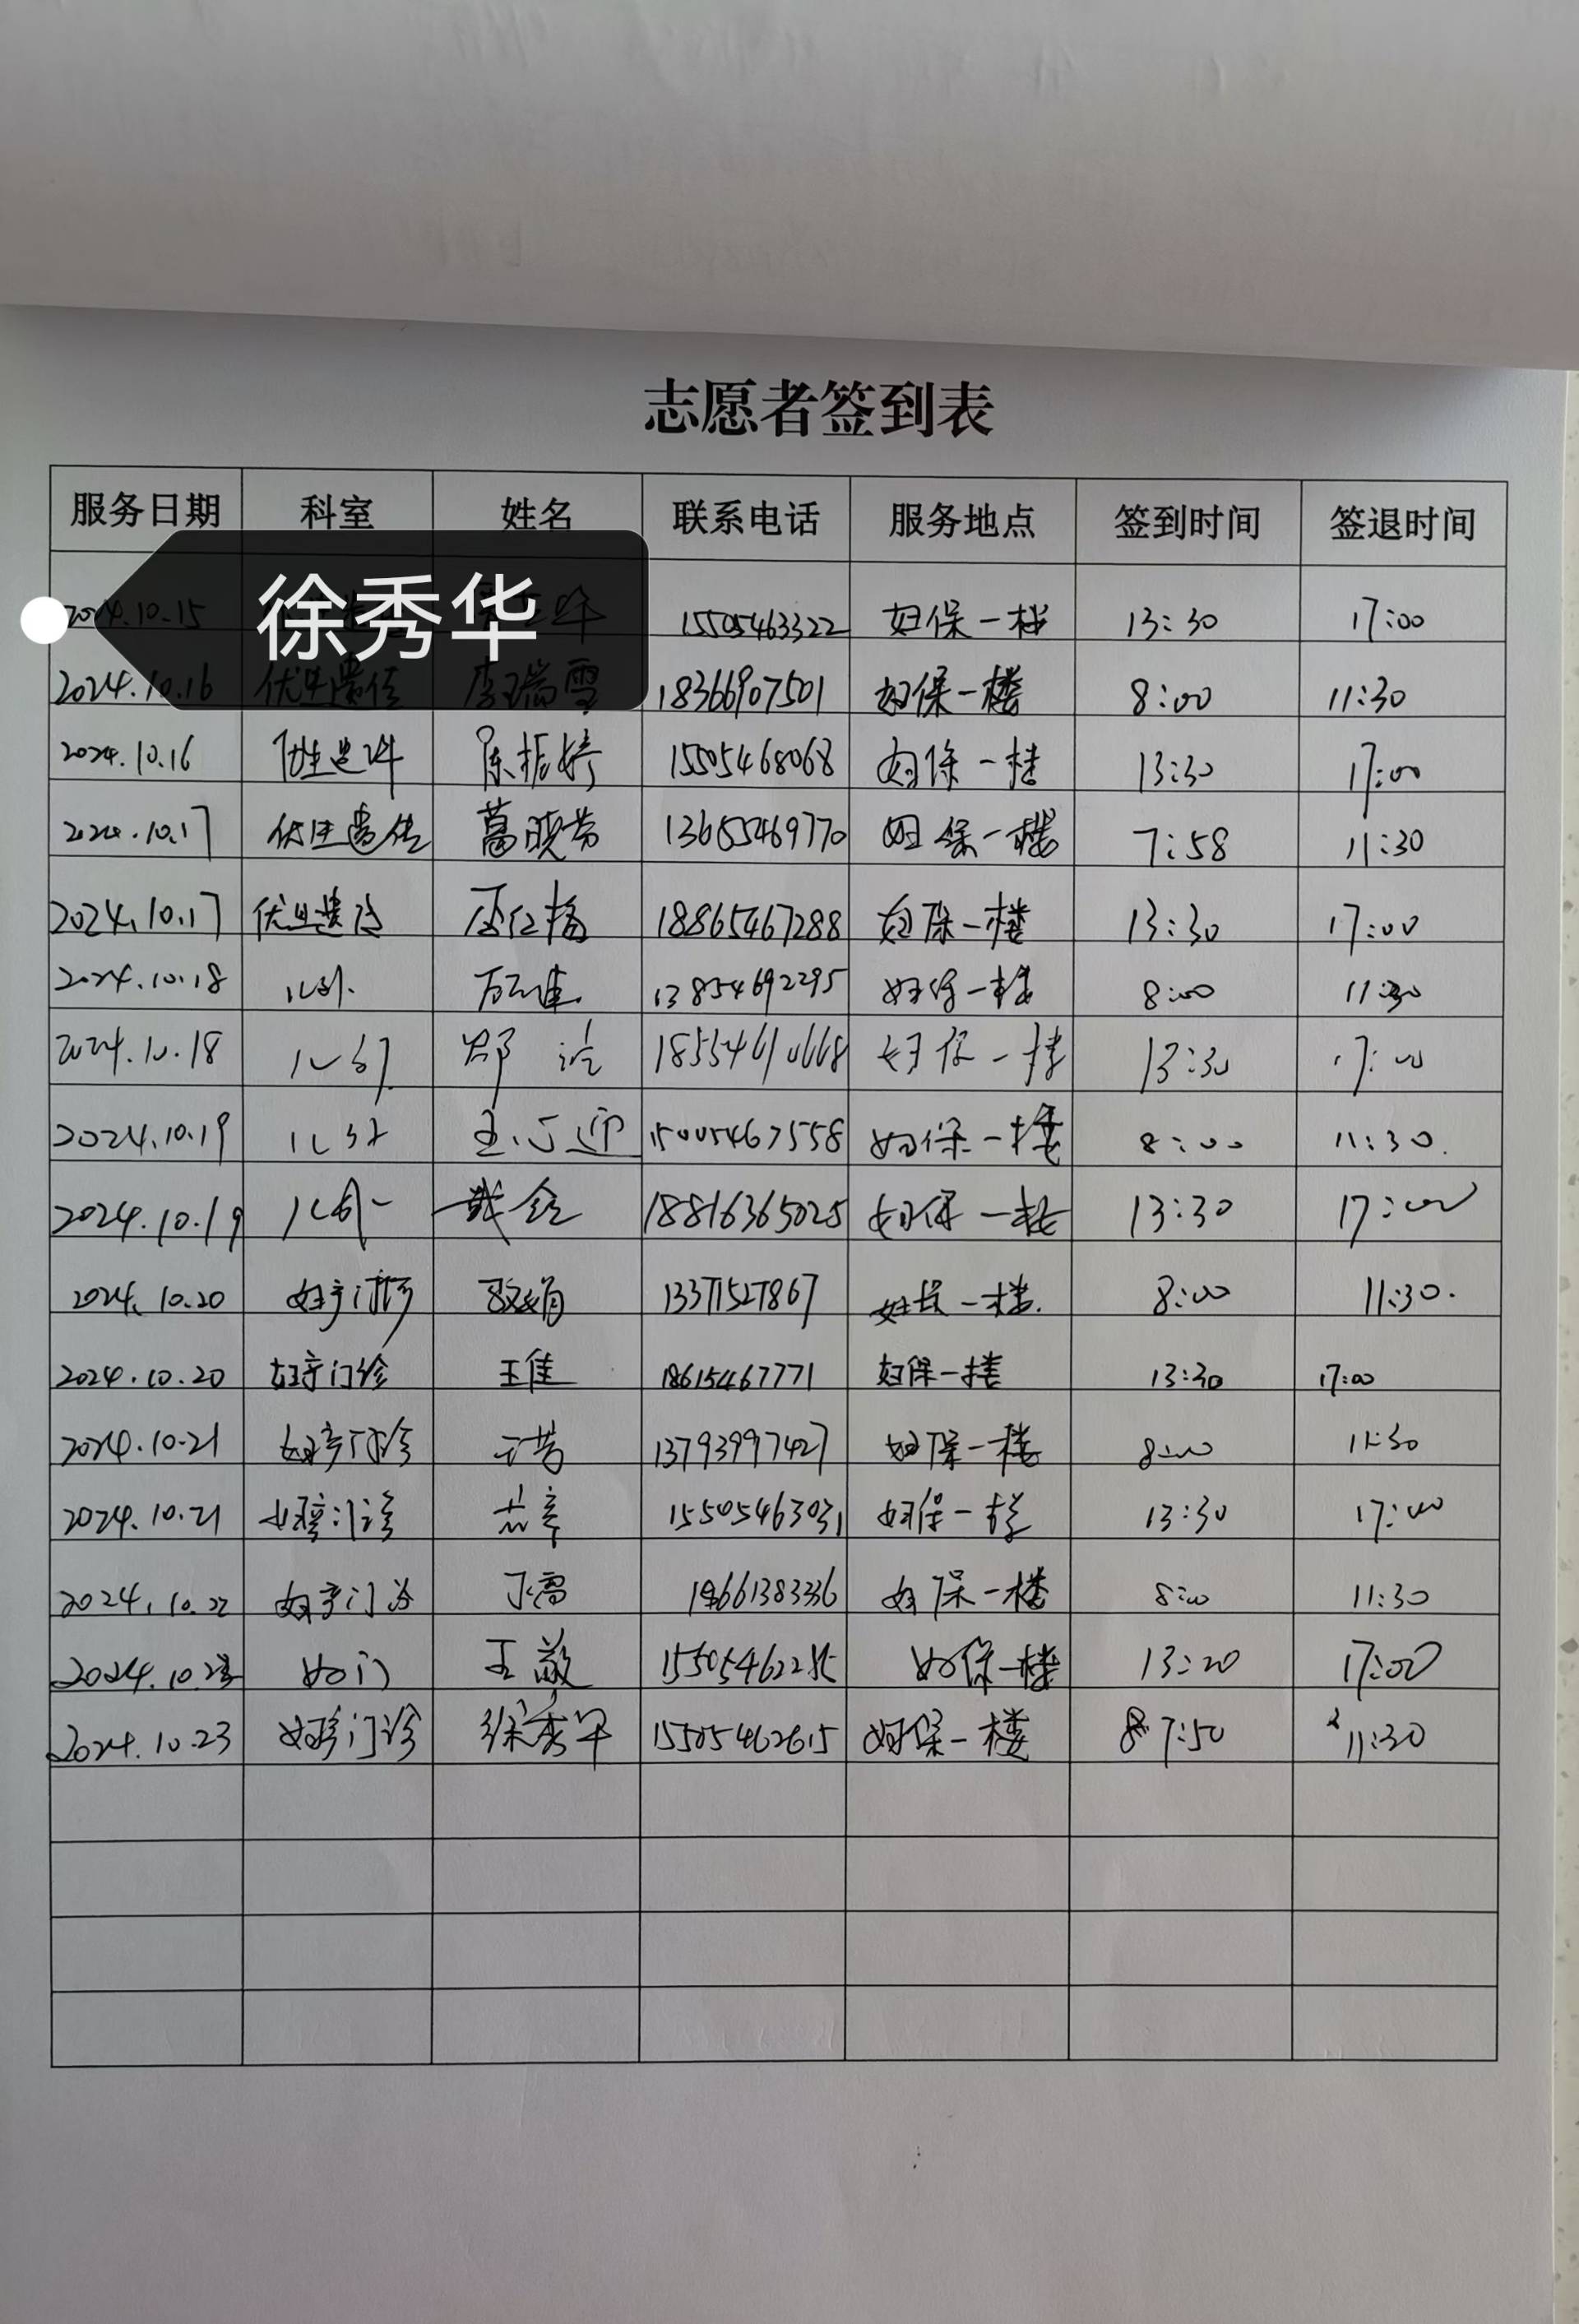 志愿者签到表
服务日期 科室 姓名 联系电话 服务地点 签到时间 签退时间
徐秀华
2024.10.15 15505463322 妇保一楼 13:30 17:00
2024.10.16 优生遗传 李瑞雪 18366907501 妇保一楼 8:00 11:30
2024.10.16 陈振婷 15505468068 妇保一楼 13:30 17:00
2024.10.17 优生遗传 葛晓芳 13655469770 妇保一楼 7:58 11:30
2024.10.17 优生遗传 18865467288 妇保一楼 13:30 17:00
2024.10.18 儿外 13854692295 妇保一楼 8:00 11:30
2024.10.18 儿外 妇保一楼 13:30 17:00
2024.10.19 儿外 王心迎 15005467558 妇保一楼 8:00 11:30.
2024.10.19 儿外 18816365025 妇保一楼 13:30 17:00
2024.10.20 妇产门诊 13371527867 妇保一楼. 8:00 11:30.
2024.10.20 妇产门诊 王佳 18615467771 妇保一楼 13:30 17:00
2024.10.21 妇产门诊 13793997427 妇保一楼 8:00 11:30
2024.10.21 妇产门诊 15505463031 妇保一楼 13:30 17:00
2024.10.22 妇产门诊 妇保一楼 8:00 11:30
妇门 王敏 妇保一楼 13:20 17:00
2024.10.23 妇产门诊 徐秀华 15505462615 妇保一楼 7:50 11:30